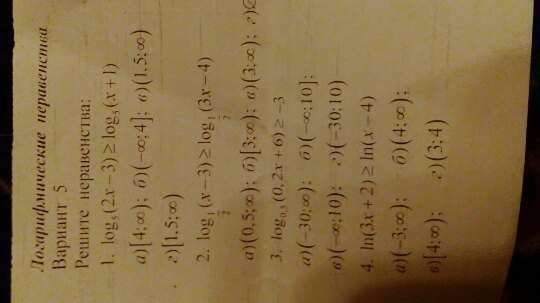 Логарифмические неравенства
Вариант 5
Решите неравенства:
1. log₅(2x−3) ≥ log₅(x+1)
а)[4;∞); б)(−∞;4]; в)(1,5;∞)
г)[1,5;∞)
2. log_{1/2}(x−3) ≥ log_{1/2}(3x−4)
а)(0,5;∞); б)[3;∞); в)(3;∞); г)∅
3. log₀,₅(0,2x+6) ≥ −3
а)(−30;∞); б)(−∞;10];
в)(−∞;10); г)(−30;10)
4. ln(3x+2) ≥ ln(x−4)
а)(−3;∞); б)(4;∞);
в)[4;∞); г)(3;4)